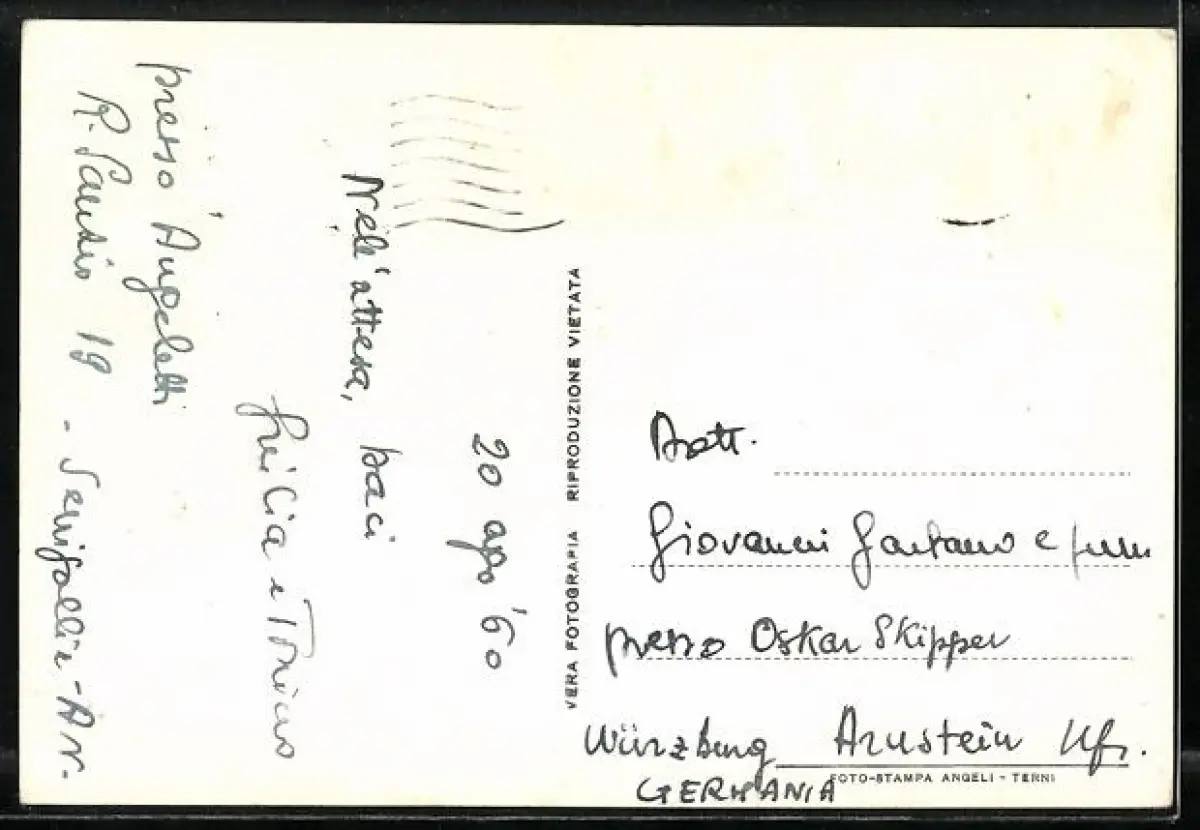 20 ago '60
Nell'attesa, baci
e
presso Angeletti
R. Sanzio 19 - Senigallia - AN.
VERA FOTOGRAFIA RIPRODUZIONE VIETATA
Dott.
Giovanni Gaetano e
presso Oskar Skipper
Würzburg Arnstein Ufr.
GERMANIA
FOTO-STAMPA ANGELI - TERNI